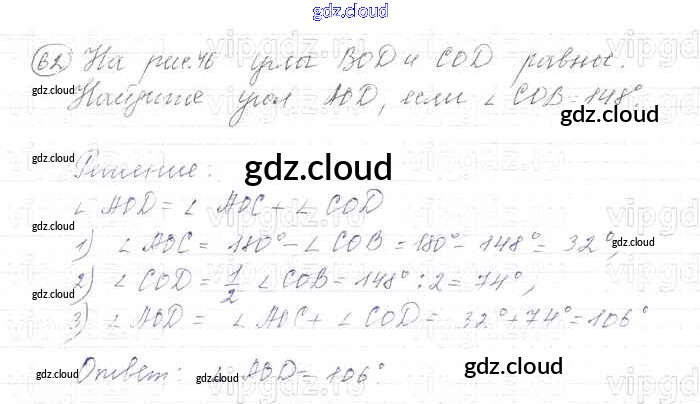 gdz.cloud
62) На рис. 46 углы BOD и COD равны.
Найдите угол AOD, если ∠ COB = 148°.
gdz.cloud
gdz.cloud
Решение:
gdz.cloud
gdz.cloud
∠ AOD = ∠ AOC + ∠ COD
gdz.cloud
1) ∠ AOC = 180° - ∠ COB = 180° - 148° = 32°,
gdz.cloud
2) ∠ COD = 1/2 ∠ COB = 148° : 2 = 74°,
gdz.cloud
3) ∠ AOD = ∠ AOC + ∠ COD = 32° + 74° = 106°
gdz.cloud
Ответ: ∠ AOD = 106°.
gdz.cloud
gdz.cloud